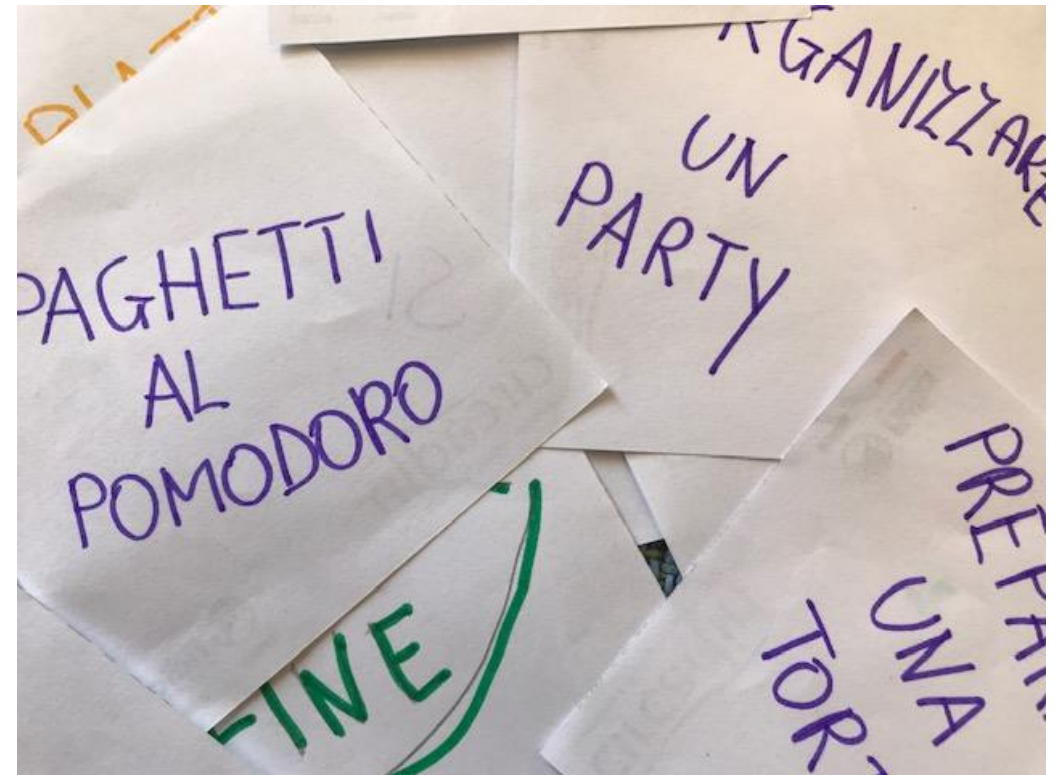 PAGHETTI
AL
POMODORO
RGANIZZARE
UN
PARTY
PREPAR
UNA
TORT
INE
SI